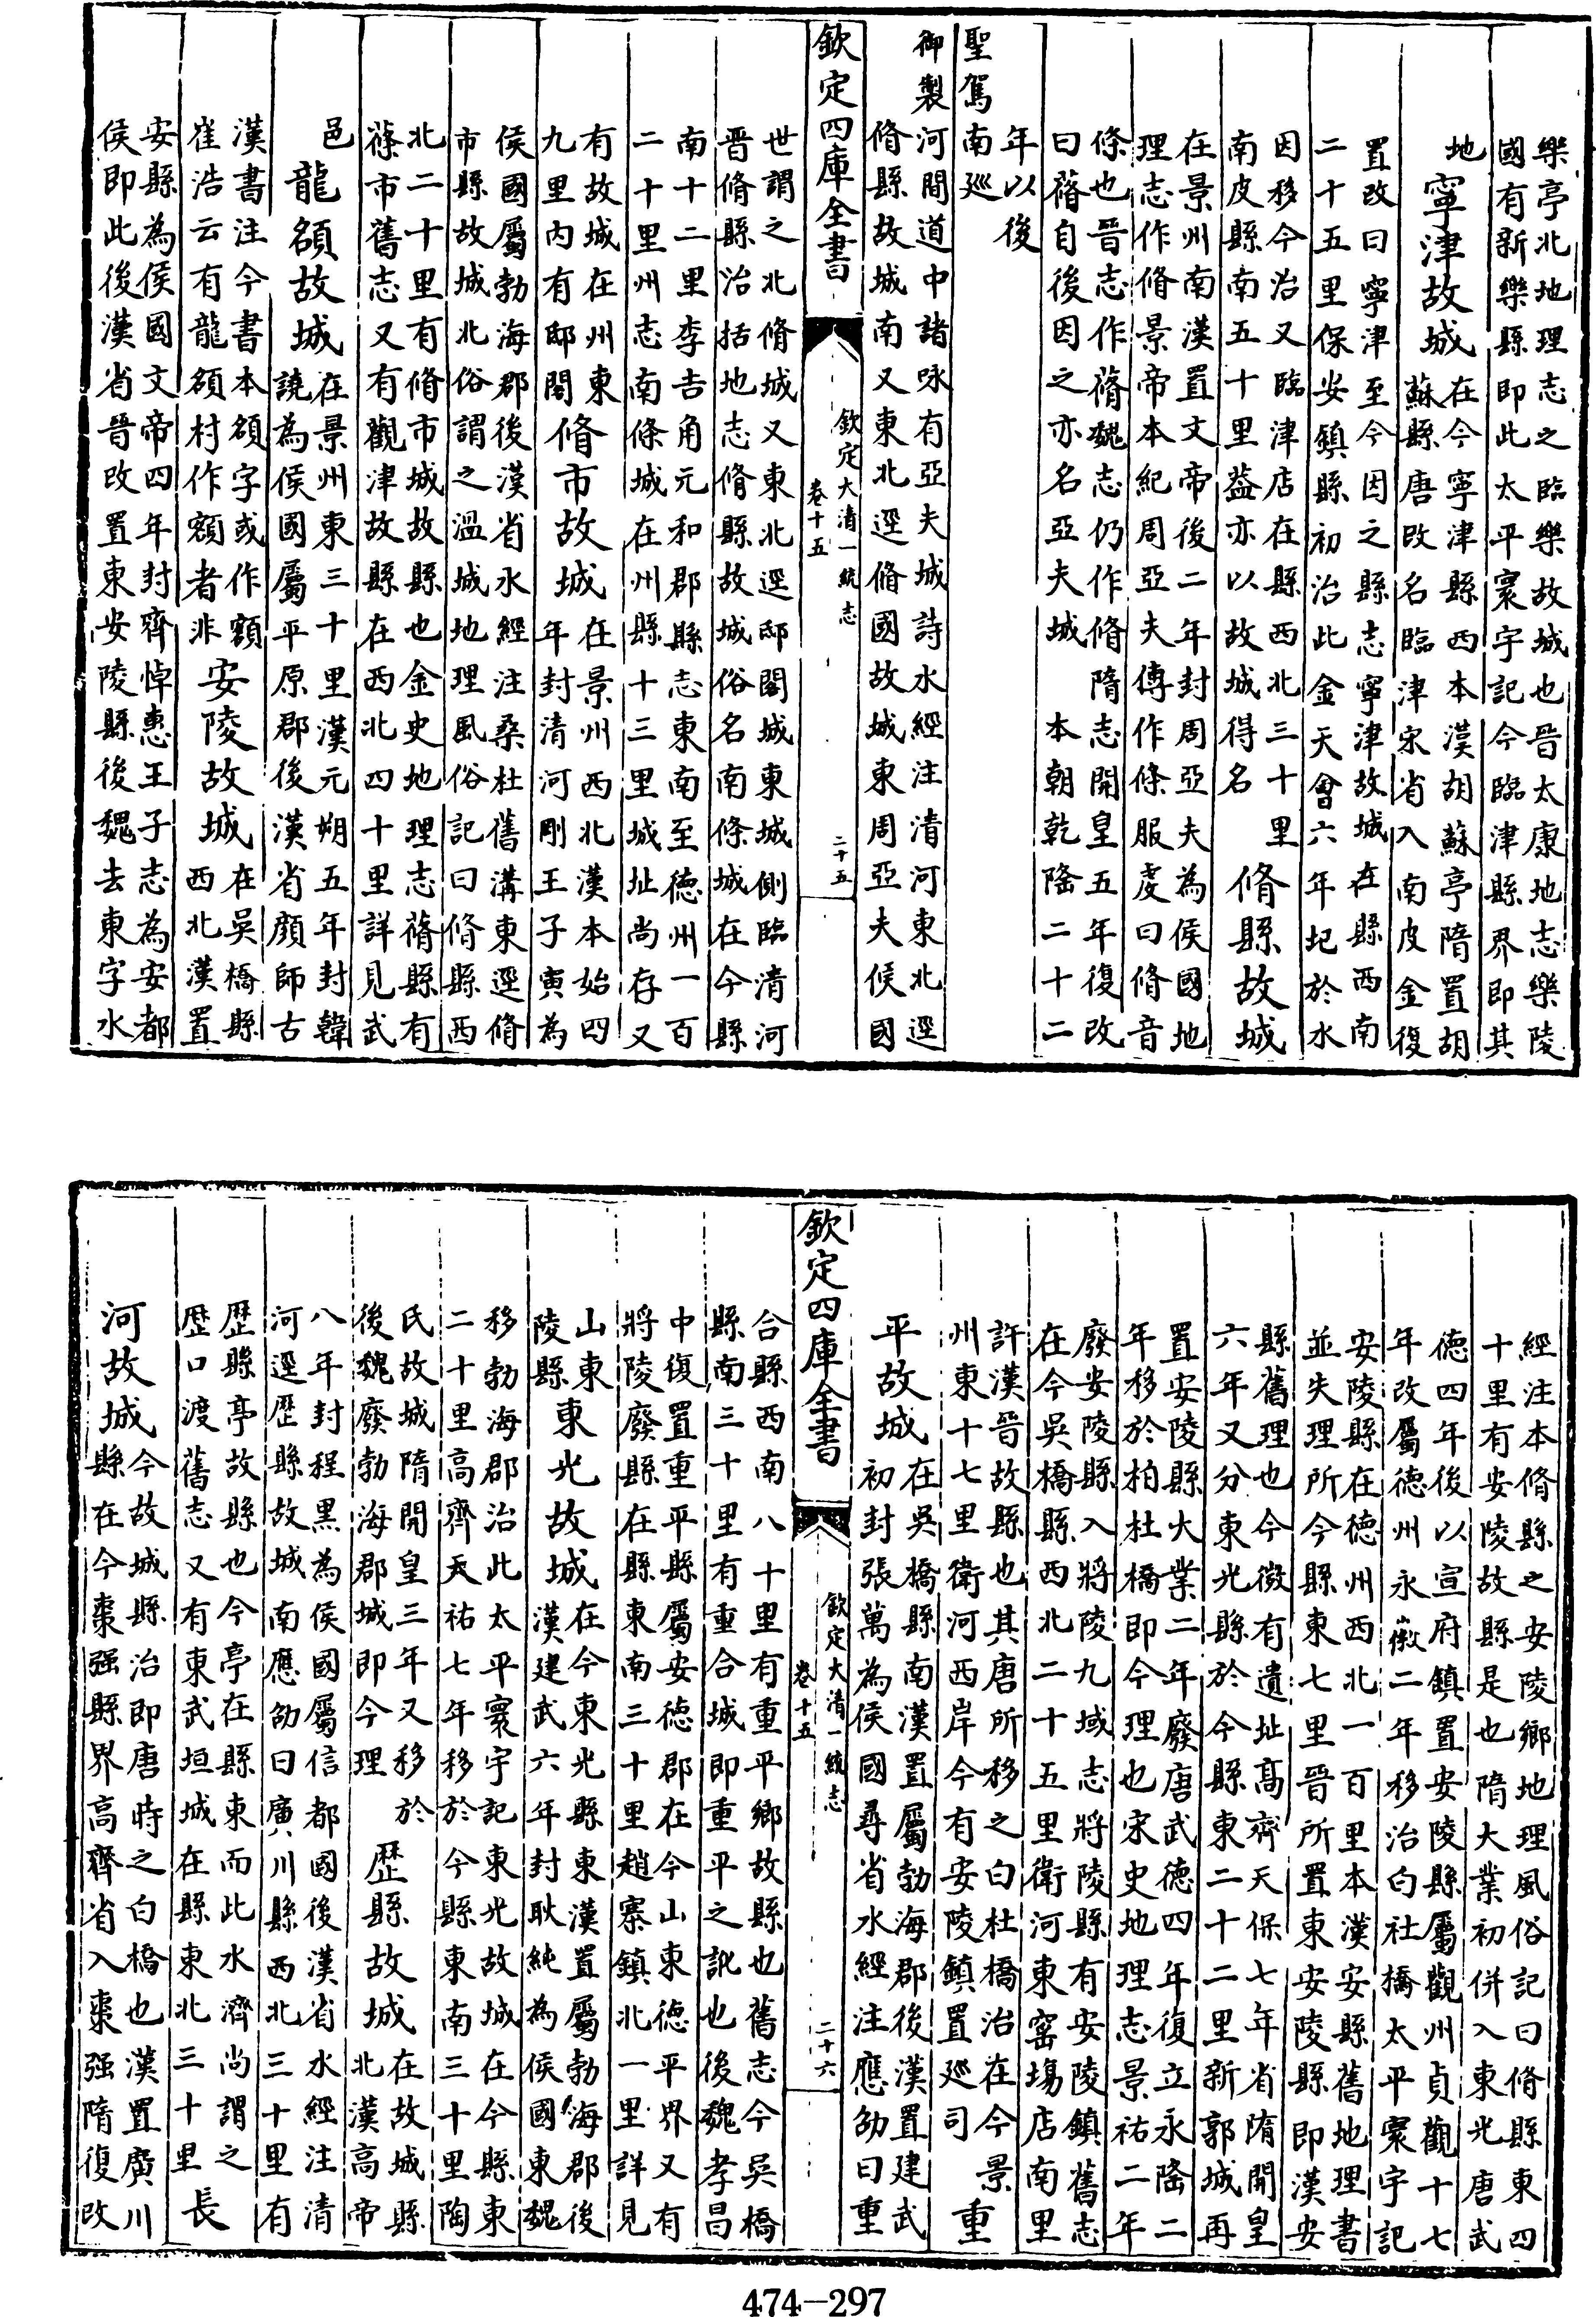 樂亭北地理志之臨樂故城也晉太康地志樂陵
國有新樂縣即此太平寰宇記今臨津縣界即其
地
寧津故城
在今寧津縣西本漢胡蘇亭隋置胡
蘇縣唐改名臨津宋省入南皮金復
置改曰寧津至今因之縣志寧津故城在縣西南
二十五里保安鎮縣初治此金天會六年圮於水
因移今治又臨津店在縣西北三十里
南皮縣南五十里益亦以故城得名
脩縣故城
在景州南漢置文帝後二年封周亞夫為侯國地
理志作脩景帝本紀周亞夫傳作條服虔曰脩音
條也晉志作蓨魏志仍作脩隋志開皇五年復改
曰蓨自後因之亦名亞夫城 本朝乾隆二十二
年以後
聖駕南巡
御製河間道中諸咏有亞夫城詩水經注清河東北逕
脩縣故城南又東北逕脩國故城東周亞夫侯國
欽定四庫全書
欽定大清一統志
卷十五
二十五
世謂之北脩城又東北逕邸閣城東城側臨清河
晉脩縣治括地志脩縣故城俗名南條城在今縣
南十二里李吉角元和郡縣志東南至德州一百
二十里州志南條城在州縣十三里城址尚存又
有故城在州東
九里內有邸閣
脩市故城
在景州西北漢本始四
年封清河剛王子寅為
侯國屬勃海郡後漢省水經注桑杜舊溝東逕脩
市縣故城北俗謂之溫城地理風俗記曰脩縣西
北二十里有脩市城故縣也金史地理志蓨縣有
蓧市舊志又有觀津故縣在西北四十里詳見武
邑
龍頟故城
在景州東三十里漢元朔五年封韓
譊為侯國屬平原郡後漢省顏師古
漢書注今書本頟字或作額
崔浩云有龍頟村作額者非
安陵故城
在吳橋縣
西北漢置
安縣為侯國文帝四年封齊悼惠王子志為安都
侯即此後漢省晉改置東安陵縣後魏去東字水
經注本脩縣之安陵鄉地理風俗記曰脩縣東四
十里有安陵故縣是也隋大業初併入東光唐武
德四年後以宣府鎮置安陵縣屬觀州貞觀十七
年改屬德州永徽二年移治白社橋太平寰宇記
安陵縣在德州西北一百里本漢安縣舊地理書
並失理所今縣東七里晉所置東安陵縣即漢安
縣舊理也今徵有遺址高齊天保七年省隋開皇
六年又分東光縣於今縣東二十二里新郭城再
置安陵縣大業二年廢唐武德四年復立永隆二
年移於柏杜橋即今理也宋史地理志景祐二年
廢安陵縣入將陵九域志將陵縣有安陵鎮舊志
在今吳橋縣西北二十五里衛河東窑塲店南里
許漢晉故縣也其唐所移之白杜橋治在今景
州東十七里衛河西岸今有安陵鎮置廵司
重
平故城
在吳橋縣南漢置屬勃海郡後漢置建武
初封張萬為侯國尋省水經注應劭曰重
欽定四庫全書
欽定大清一統志
卷十五
二十六
合縣西南八十里有重平鄉故縣也舊志今吳橋
縣南三十里有重合城即重平之訛也後魏孝昌
中復置重平縣屬安德郡在今山東德平界又有
將陵廢縣在縣東南三十里趙寨鎮北一里詳見
山東
陵縣
東光故城
在今東光縣東漢置屬勃海郡後
漢建武六年封耿純為侯國東魏
移勃海郡治此太平寰宇記東光故城在今縣東
二十里高齊天祐七年移於今縣東南三十里陶
氏故城隋開皇三年又移於
後魏廢勃海郡城即今理
歷縣故城
在故城縣
北漢高帝
八年封程黑為侯國屬信都國後漢省水經注清
河逕歷縣故城南應劭曰廣川縣西北三十里有
歷縣亭故縣也今亭在縣東而此水濟尚謂之
歷口渡舊志又有東武垣城在縣東北三十里
長
河故城
今故城縣治即唐時之白橋也漢置廣川
縣在今棗强縣界高齊省入棗强隋復改
474—297